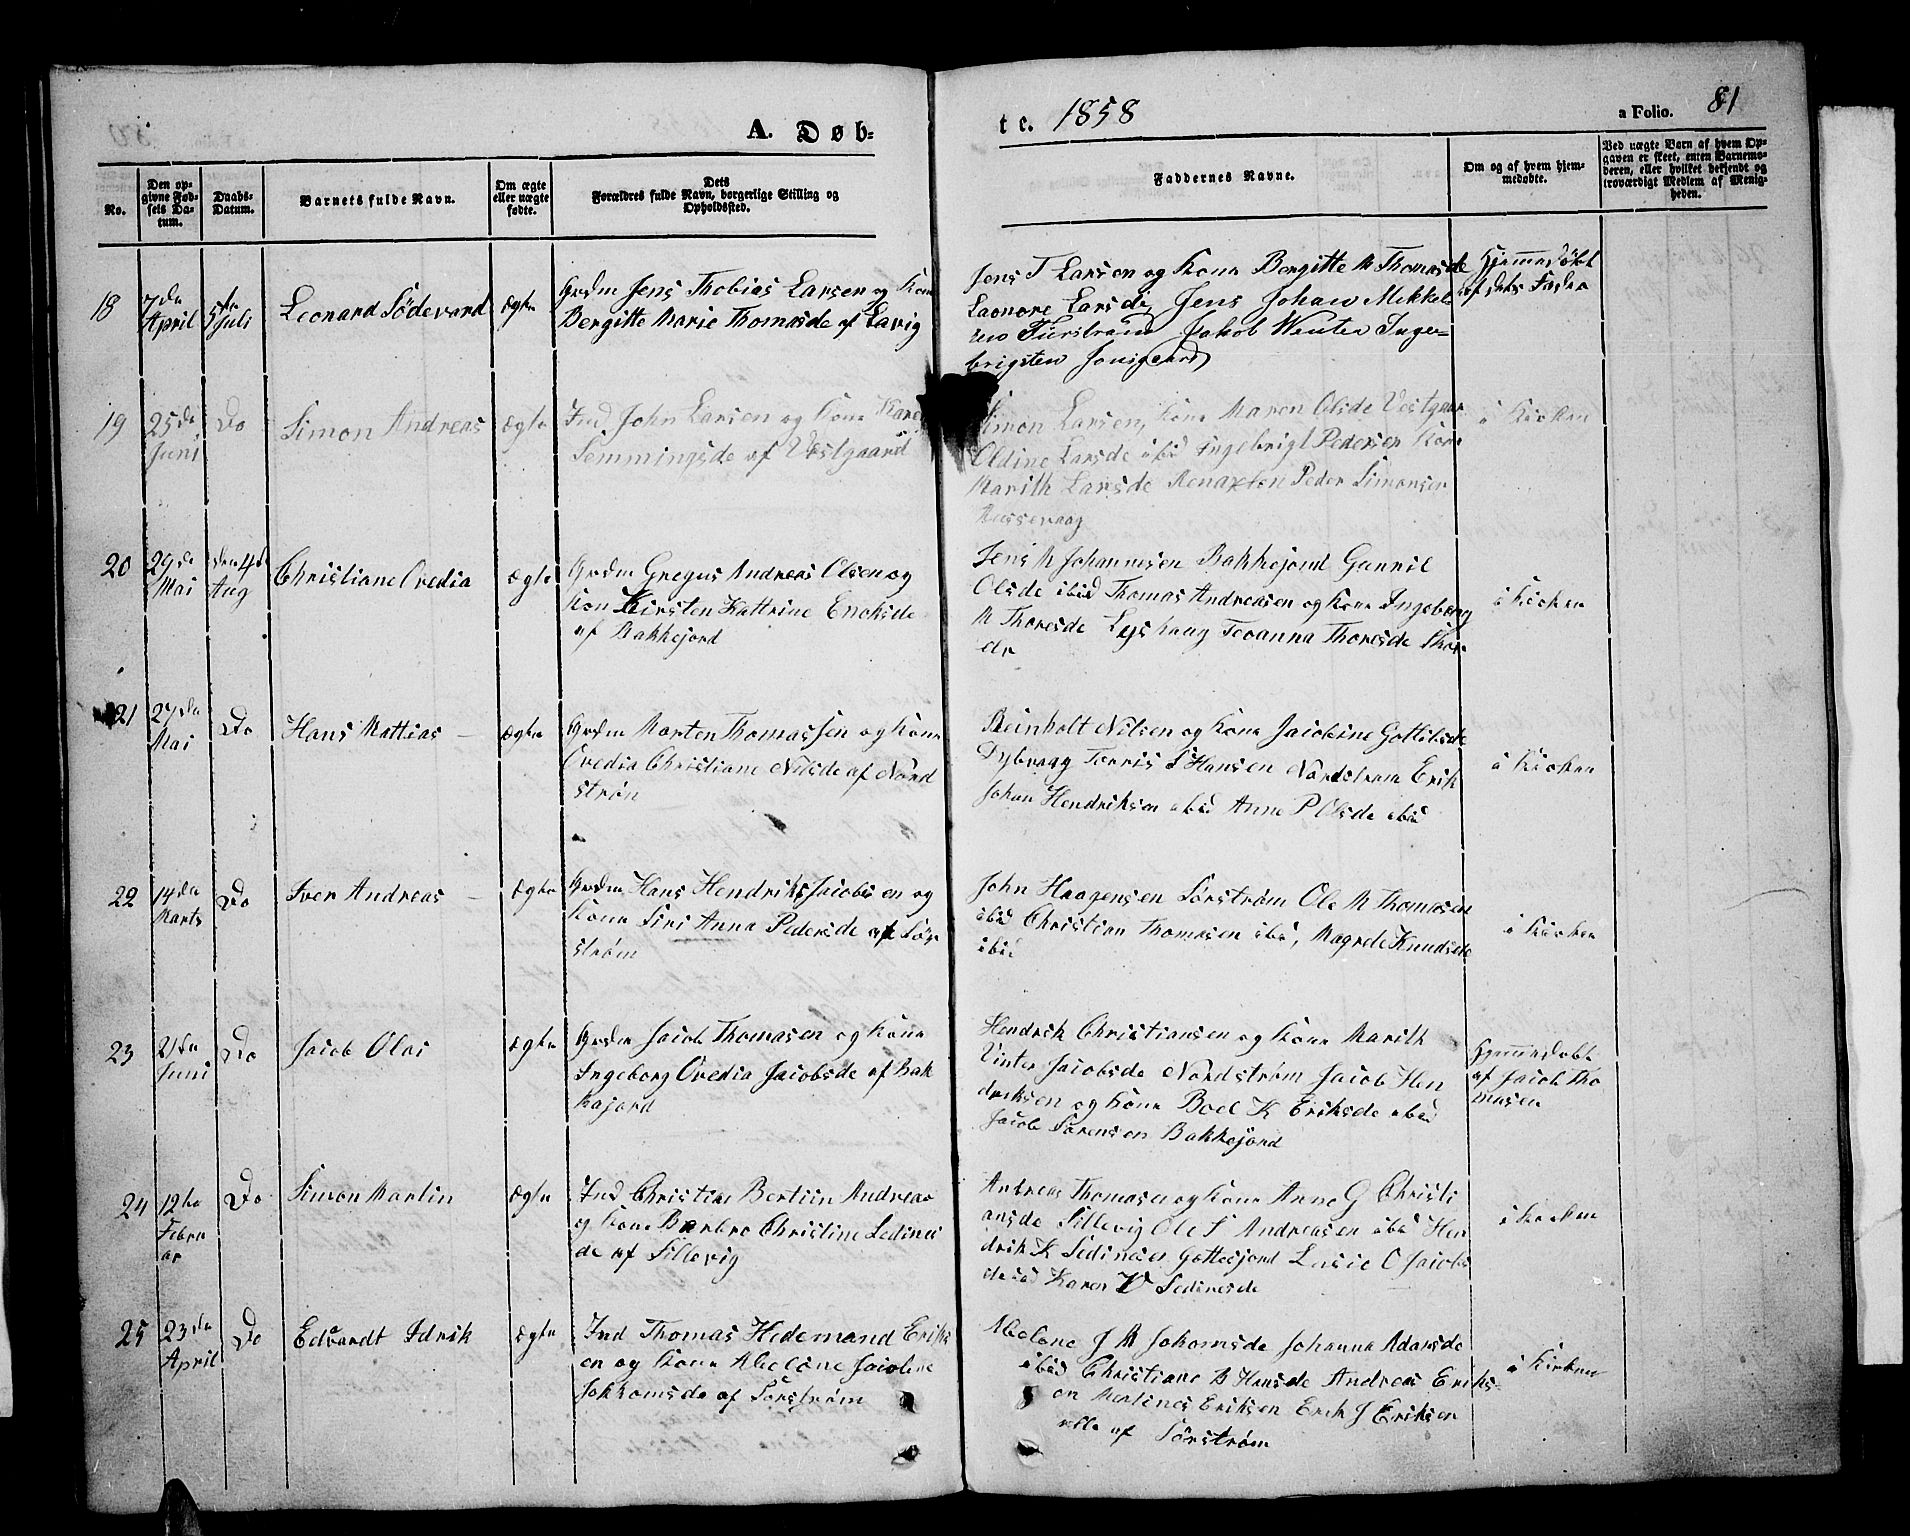 A. Døb-
te. 1858
a Folio. 81
No.
Den opgivne Fødsels Datum.
Daabs-Datum.
Barnets fulde Navn.
Om ægte eller uægte fødte.
Dets Forældres fulde Navn, borgerlige Stilling og Opholdssted.
Faddernes Navne.
Om og af hvem hjemmedøbte.
Ved uægte Barn af hvem Opgaven er skeet, enten Barnemoderen, eller hvilket bekjendt og troværdigt Medlem af Menigheden.
18
7da April
5te Juli
Leonard Södevard
Ægte
Grdm Jens Thobias Larsen og Kone
Bergitte Marie Thomasde af Lavig
Jens T Larsen og Kone Bergitte M Thomasde
Laonore Larsde, Jens Johan Mikkel
Jakob Wenter Inge-
brigsten
Hjemmedøbt
af dets Fader
19
25da Juni
Do
Simon Andreas
ægte
Ind John Larsen og Kone Karen
Semmingsde af Vestgaard
Simon Larsen, Kone Maren Olsde Vestgaar
Oldine Larsde ibid Ingebrigt Pedersen Kone
Marith Larsde Peder Simonsen
Mussevaag
i Kirken
20
29da Mai
den 4d Aug
Christiane Ovedia
ægte
Grdm Gregus Andreas Olsen og
Kon Kirsten Kattrine Enoksde
af Bakkejord
Jens M Johannesen Bakkejord Gunnil
Olsde ibid Thomas Andreasen og Kone Ingeborg
M Thoresde Lysvaag Thoresde
i Kirken
21
27da Mai
Do
Hans Mattias
ægte
Grdm Morten Thomassen og Kone
Ovedia Christiane Nilsde af Nord
strøm
Reinholt Nilsen og Kone Jacobine Gottilsde
Dybvaag Torris S Hansen Nordstrøm Erik
Johan Hendriksen ibid Anne P Olsde ibid
i Kirken
22
14da Marts
Do
Iver Andreas
Ægte
Grdm Hans Hendrik Jacobsen og
Kone Siri Anna Pedersde af Sör
strøm
John Haagensen Sörstrøm Ole M Thomasen
ibid Christian Thomasen ibid, Magrede Knudsde
ibid
i Kirken
23
21da Juni
Do
Jacob Olai
ægte
Grdm Jacob Thomasen og Kone
Ingeborg Ovedia Jacobsde af Bak
kejord
Hendrik Christiansen og Kone Marith
Vinter Jacobsde Nordstrøm Jacob Hen
driksen og Kone Boel K Eriksde ibid
Jacob Sørensen Bakkejord
Hjemmedøbt
af Jacob Tho
masen
24
12te Febru ar
Do
Simon Martin
ægte
Ind Christian Bertiin Andreas
og Kone Barbro Christine Sedines
de af Sillevig
Andreas Thomasen og Kone Anne G Christi
ansde Sillevig Ole S Andreasen ibid Hen
drik K Sedinesen Gottesjord Lusie O Jacobs
de ibid Karen V Sedinesde
i Kirken
25
23da April
Do
Edvardt Idrik
ægte
Ind Thomas Hedemand Eriks
en og Kone Abelone Jacobine
Jokkomsde af Sörstrøm
Abelone J M Jokomsde Johanna Adamsde
ibid Christiane B Hansde Andreas Eriks-
en Martines Eriksen Erik J Eriksen
alle af Sörstrøm
i Kirken